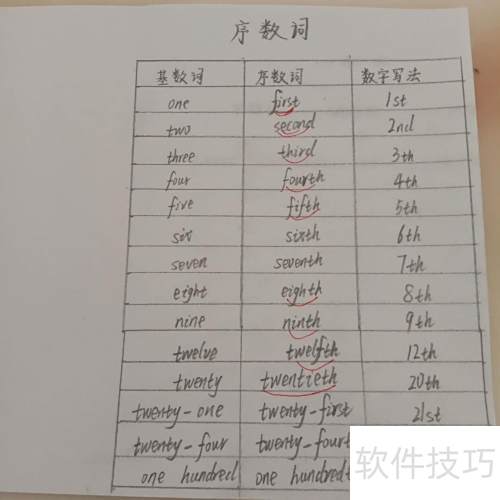 序数词
基数词 序数词 数字写法
one first 1st
two second 2nd
three third 3th
four fourth 4th
five fifth 5th
six sixth 6th
seven seventh 7th
eight eighth 8th
nine ninth 9th
twelve twelfth 12th
twenty twentieth 20th
twenty-one twenty-first 21st
twenty-four twenty-fourt
one hundred one hundred
软件技巧